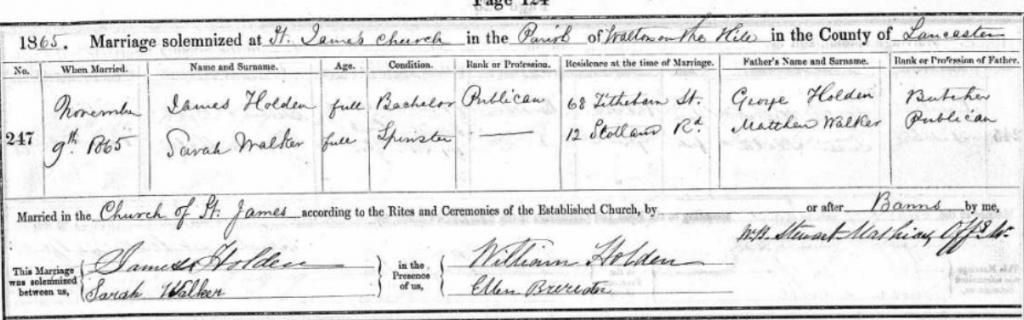 Page 124
1865. Marriage solemnized at St. James church in the Parish of Walton on the Hill in the County of Lancaster
No. When Married. Name and Surname. Age. Condition. Rank or Profession. Residence at the time of Marriage. Father's Name and Surname. Rank or Profession of Father.
247 November 9th 1865 James Holden full Bachelor Publican 68 Tithebarn St. George Holden Butcher
Sarah Walker full Spinster 12 Scotland Rd Matthew Walker Publican
Married in the Church of St. James according to the Rites and Ceremonies of the Established Church, by or after Banns by me,
W.B. Stewart
This Marriage was solemnized between us, James Holden in the Presence of us, William Holden
Sarah Walker Ellen